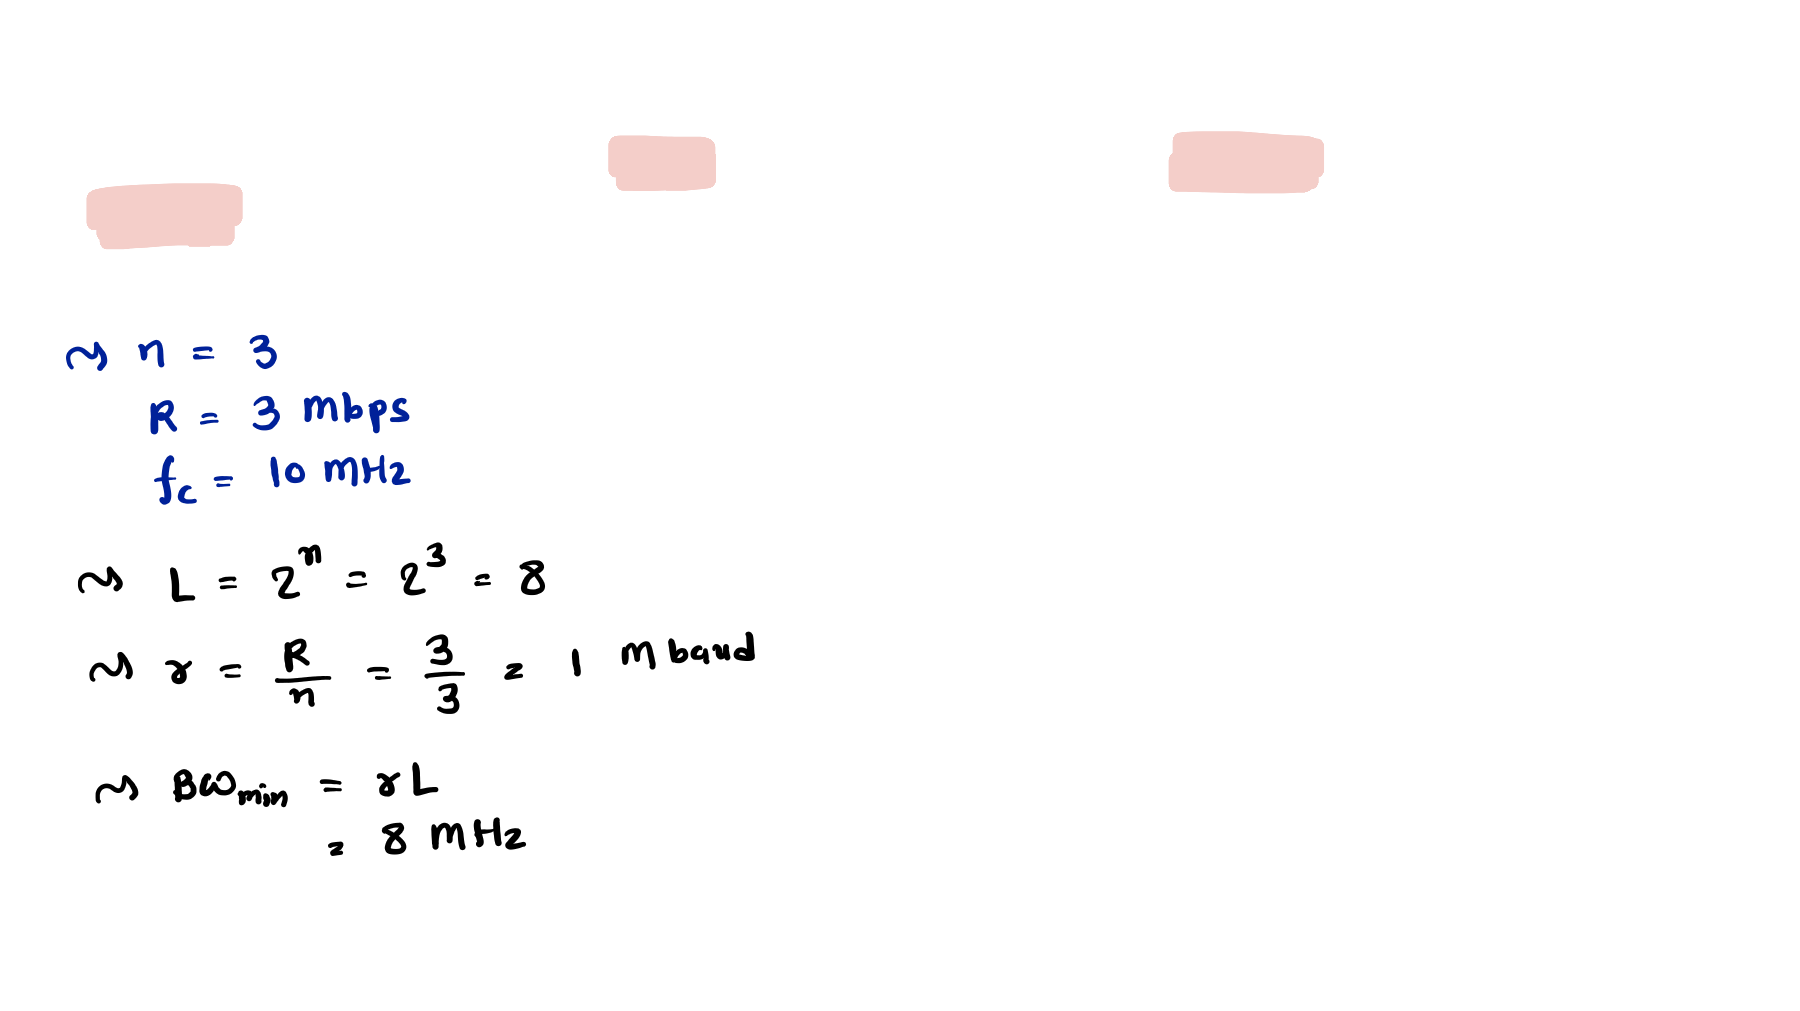 ~> n = 3
R = 3 mbps
fc = 10 mHz
~> L = 2^n = 2^3 = 8
~> r = R/n = 3/3 = 1 m baud
~> BWmin = rL
= 8 mHz